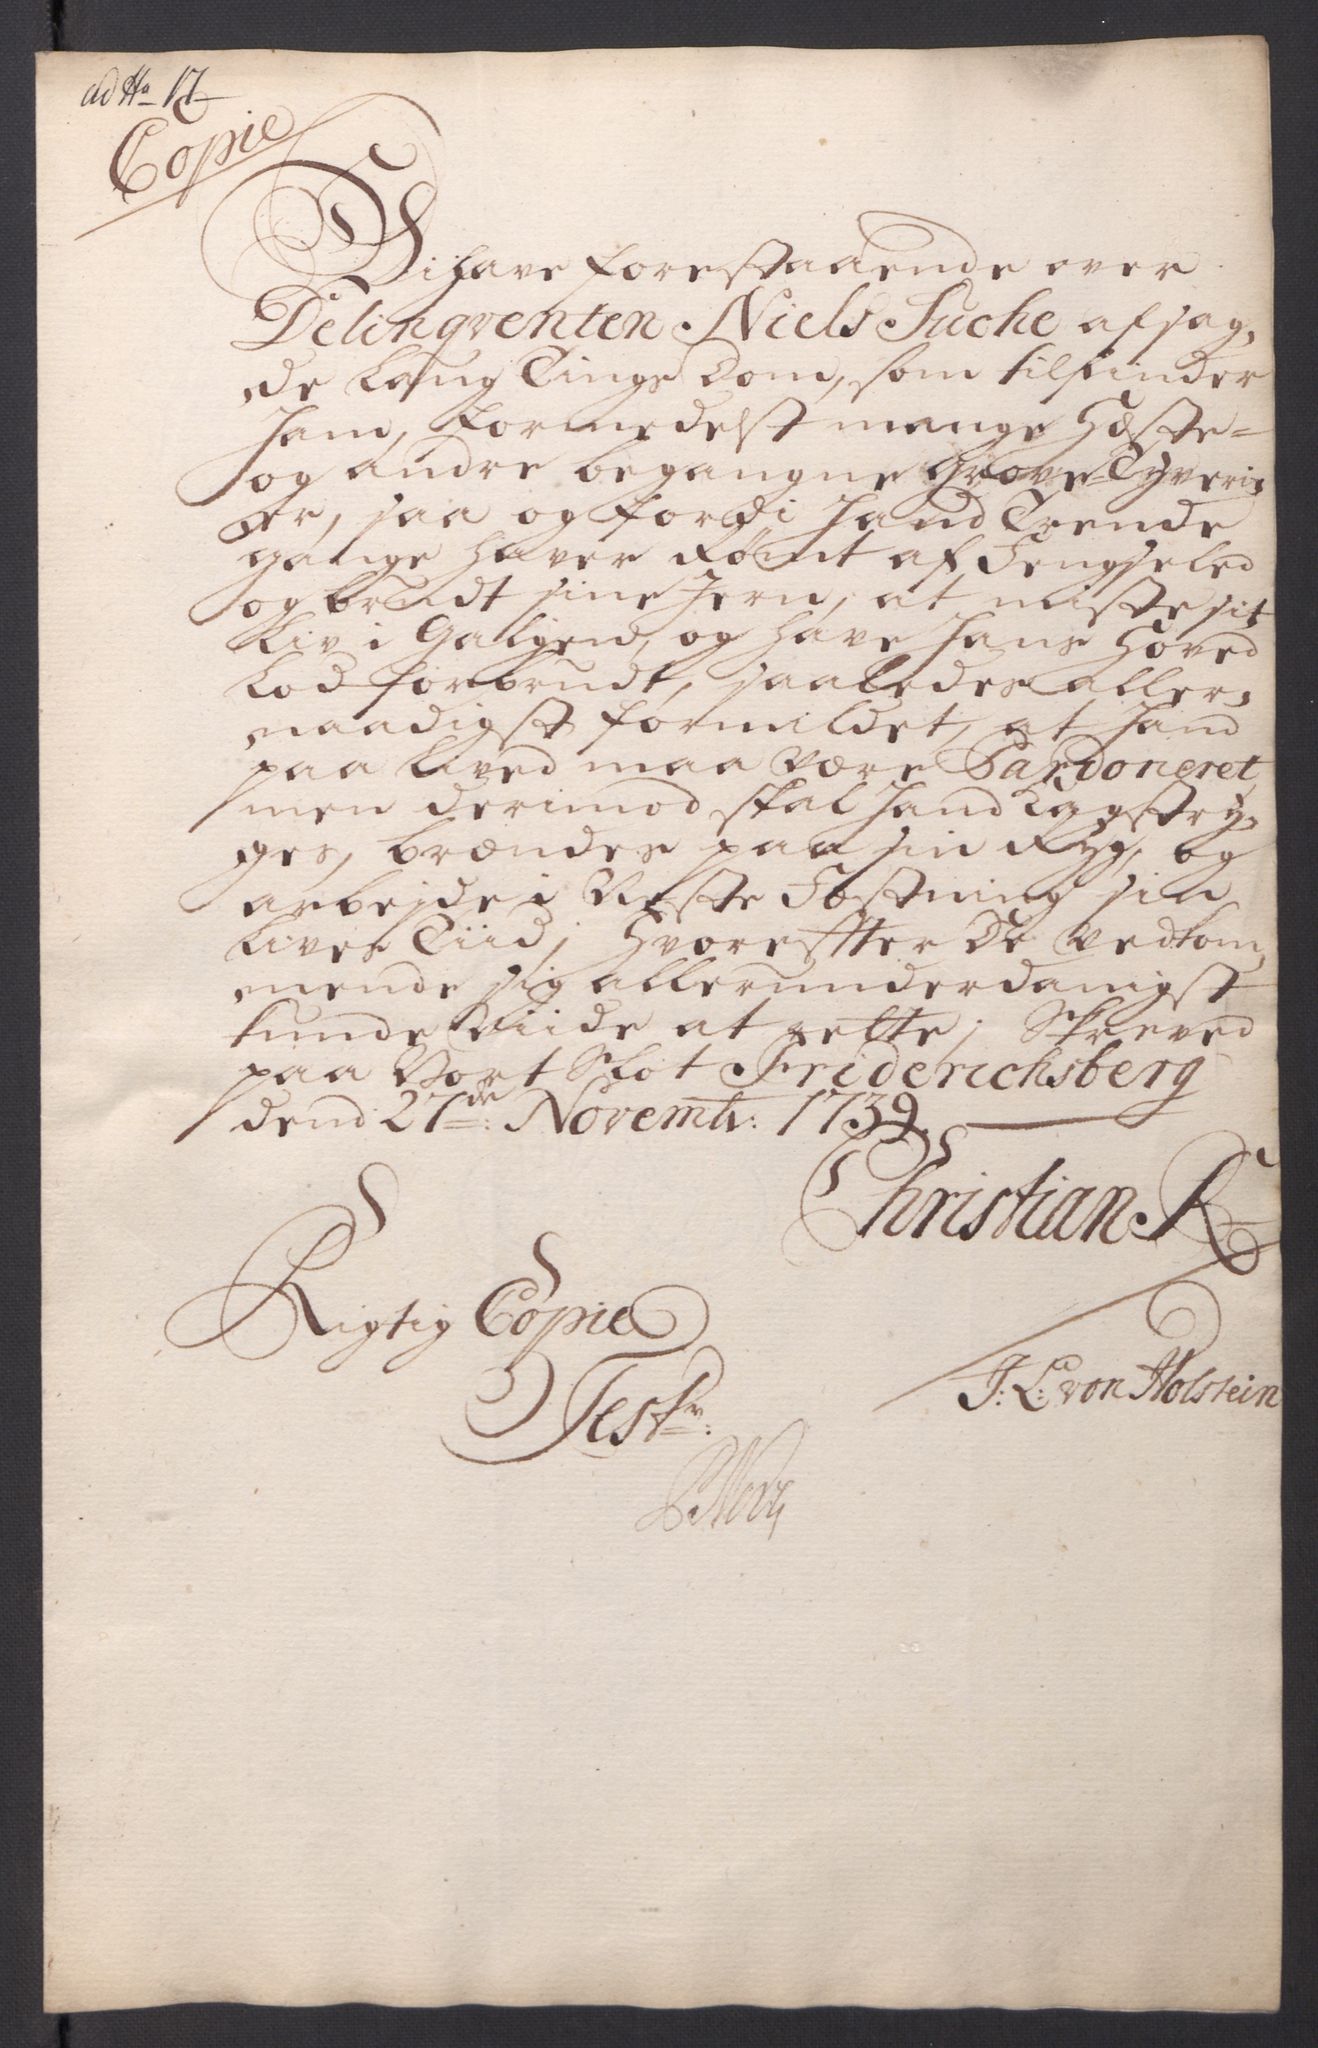 ad No 17
Copie
Vi have forestaaende over
Delinqventen Niels Suche afsag,
de Laug Tings Dom, som tilfinder
ham, formedelst mange Hæste-
og andre begangne Grove Tyveri,
er, saa og fordi hand Trende
gange haver Rømt af Fengseled
og brudt sine Jern, at miste sit
Liv i Galgen, og have hans Hoved
Lod forbrudt, saaledes aller,
naadigst formildet, at hand
paa Lived maa være Pardoneret,
men derimod skal hand Kagstry,
ges, brændes paa sin Ryg, og
arbejde i Neste Fæstning sin
Lives Tiid; Hvorefter De Vedkom,
mende sig allerunderdanigst
kunde Viide at rette; Skreved
paa Vort Slot Friderichsberg
dend 27de: Novembr: 1739.
Christian R
Rigtig Copie
J: L: von Holstein
Testr: